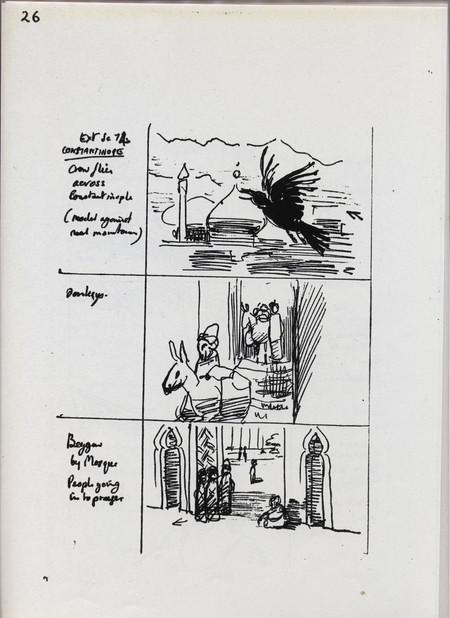 26
Ext Sc 7
CONSTANTINOPLE
Crow flies
across
Constantinople
(model against
real mountain)
Donkeys.
Beggar
by Mosque
People going
in to prayer